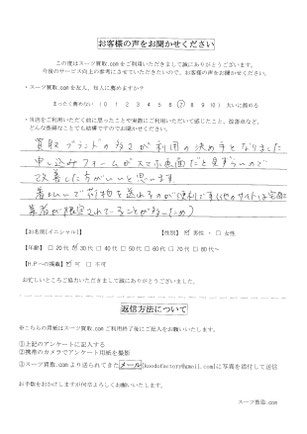 お客様の声をお聞かせください
この度はスーツ買取.comをご利用いただきまして誠にありがとうございます。
今後のサービス向上の参考にさせていただきたいので、お客様の声をお聞かせください。
・スーツ買取.comを友人、知人に薦めますか?
まったく薦めない (0 1 2 3 4 5 6 7 8 9 10) 大いに薦める
・当店をご利用いただく前に思ったことや実際にご利用いただいて感じたこと、改善点など、
どんな些細なことでも結構ですのでお聞かせください。
買取ブランドの多さが利用の決め手となりました
申し込みフォームがスマホ画面だと見ずらいので
改善した方がいいと思います
着払いで荷物を送れるのが便利です(他のサイトは宅配
業者が限定されてることが多いため)
【お名前(イニシャル)】 【性別】 ☑ 男性 ・ □ 女性
【年齢】 □ 20代 ☑ 30代 □ 40代 □ 50代 □ 60代 □ 70代 □ 80代~
【H.Pへの掲載】 ☑ 可 □ 不可
お忙しいところご協力いただきまして誠にありがとうございました。
返信方法について
※こちらの用紙はスーツ買取.comご利用終了後にご記入をお願いいたします。
①上記のアンケートに記入する
②携帯のカメラでアンケート用紙を撮影
③スーツ買取.comより送られてきたメール
に写真を添付して送信
お手数をおかけしますが何卒よろしくお願いいたします。
スーツ買取.com